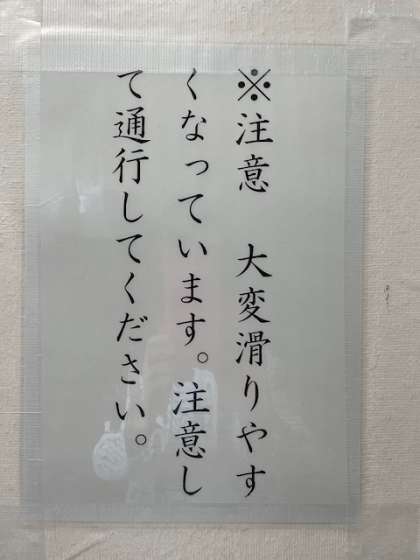 ※注意　大変滑りやす
くなっています。注意し
て通行してください。